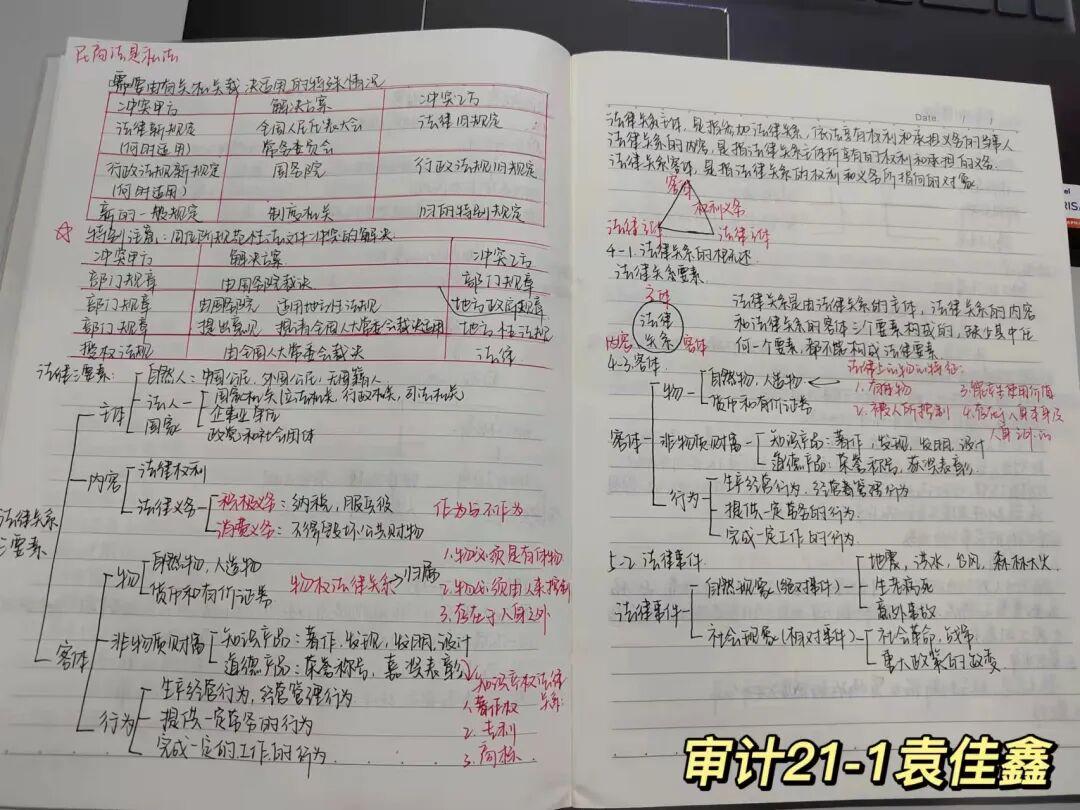 民商法是私法
需要由有关机关裁决适用的特殊情况
冲突甲方 解决方案 冲突乙方
法律新规定(何时适用) 全国人民代表大会常务委员会 法律旧规定
行政法规新规定(何时适用) 国务院 行政法规旧规定
新的一般规定 制定机关 旧的特别规定
☆ 特别注意:同位阶规范性法文件冲突的解决:
冲突甲方 解决方案 冲突乙方
部门规章 由国务院裁决 部门规章
部门规章 由国务院 适用地方性法规 地方政府规章
部门规章 提出意见 提请全国人大常委会裁决适用 地方性法规
授权法规 由全国人大常委会裁决 法律
法律三要素:
法律关系三要素
主体
自然人:中国公民,外国公民,无国籍人
法人
国家机关(立法机关,行政机关,司法机关
企事业单位
政党和社会团体
国家
内容
法律权利
法律义务
积极义务:纳税,服兵役
消费义务:不得毁坏公共财物
作为与不作为
客体
物
自然物,人造物
货币和有价证券
物权法律关系→归属
1.物必须是有体物
2.物必须由人来控制
3.存在于人身之外
非物质财富
知识产品:著作,发现,发明,设计
道德产品:荣誉称号,嘉奖表彰
知识产权法律关系:
1.著作权
2.专利
3.商标
行为
生产经营行为,经营管理行为
提供一定劳务的行为
完成一定的工作的行为
Date. / /
法律关系主体,是指参加法律关系,依法享有权利和承担义务的当事人
法律关系的内容,是指法律关系主体所享有的权利和承担的义务.
法律关系客体,是指法律关系的权利和义务所指向的对象
客体
权利义务
法律主体 法律主体
4-1.法律关系的概述
法律关系要素
主体
法律关系
内容 客体
法律关系是由法律关系的主体,法律关系的内容
和法律关系的客体三个要素构成的,缺少其中任
何一个要素,都不能构成法律要素.
4-3.客体
客体
物
自然物,人造物
货币和有价证券
法律上的物的特征:
1.有体物 3.能产生使用价值
2.被人所控制 4.存在于人身本身及
人身之外的
非物质财富
知识产品:著作,发现,发明,设计
道德产品:荣誉称号,嘉奖表彰
行为
生产经营行为,经营者管理行为
提供一定劳务的行为.
完成一定工作的行为.
5-2.法律事件
法律事件
自然现象(绝对事件)
地震,洪水,台风,森林大火
生老病死
意外事故
社会现象(相对事件)
社会革命,战争
重大政策的改变
审计21-1袁佳鑫